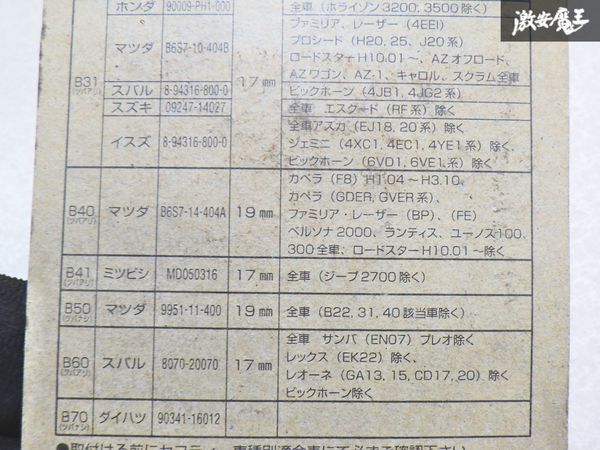 激安魔王
ホンダ 90009-PH1-000 全車(ホライゾン3200, 3500除く)
B31 (ツバアリ) 17mm
マツダ B6S7-10-404B ファミリア、レーザー(4EEI)
プロシード(H20, 25、J20系)
ロードスターH10.01〜、AZオフロード、
AZワゴン、AZ-1、キャロル、スクラム全車
スバル 8-94316-800-0 ビックホーン(4JB1, 4JG2系)
スズキ 09247-14027 全車 エスクード(RF系)除く
イスズ 8-94316-800-0 全車アスカ(EJ18, 20系)除く、
ジェミニ(4XC1, 4EC1, 4YE1系)除く、
ビックホーン(6VD1, 6VE1系)除く
B40 (ツバアリ) マツダ B6S7-14-404A 19mm カペラ(F8)H1.04〜H3.10、
カペラ(GDER, GVER系)、
ファミリア・レーザー(BP)、(FE)
ペルソナ2000、ランティス、ユーノス100、
300全車、ロードスターH10.01〜除く
B41 (ツバアリ) ミツビシ MD050316 17mm 全車(ジープ2700除く)
B50 (ツバナシ) マツダ 9951-11-400 19mm 全車(B22, 31, 40該当車除く)
B60 (ツバアリ) スバル 8070-20070 17mm 全車 サンバ(EN07)プレオ除く
レックス(EK22)除く、
レオーネ(GA13, 15, CD17, 20)除く
ビックホーン除く
B70 (ツバナシ) ダイハツ 90341-16012
●取付ける前にセフティー車種別適合表にて必ずご確認下さい